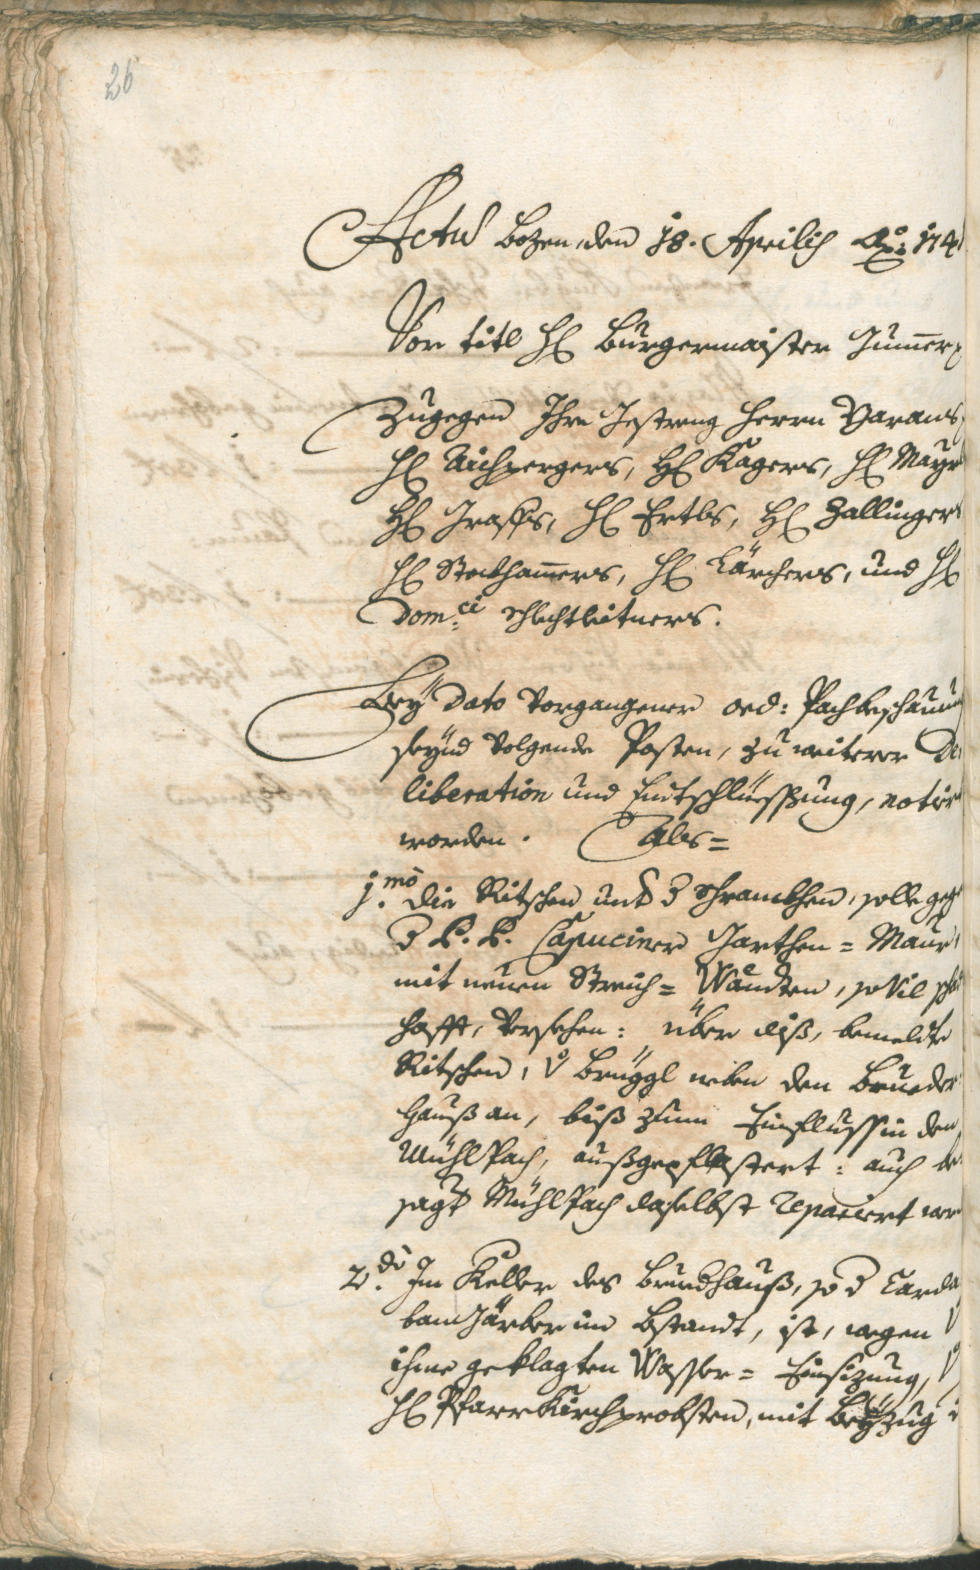 26
Actus Bozen, den 18. Aprilis Ao: 174
Vor titl H Burgermaister Gumer
Zugegen Ihro Gestreng Herrn Params,
H Aichpergers, H Kagers, H Mayr
H Graffs, H Ertls, H Zallingers
H Stockhamers, H Kärchers, und H
Dom:ci Schlechtleitners.
Bey Dato vorgangener ord: Pachbeschauung
seynd volgende Posten, zu weiterer De
liberation und Entschlüessung, notirt
worden. Als=
1.mo die Ritschen und d Schrankhen, solle geg
d P. P. Capuciner Garthen= Maur,
mit neuen Streich= Wändten, so vil
hafft, versehen: über diß, bemeldte
Ritschen, v Brüggl neben den Brueder
hauß an, biß zum Einfluss in den
Mühlpach, außgepflastert: auch be
sagt Mühlpach daselbst repariert wer
2.do Im Keller des Brudhauß, so d
Gärber im bstandt, ist, wegen v
ihme geklagten Wasser= Einsizung, v
H Pfarrkirchprobsten, mit Beyzug